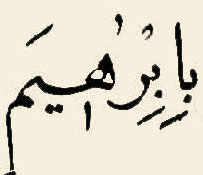 بِاِبْرٰهٖيمَ